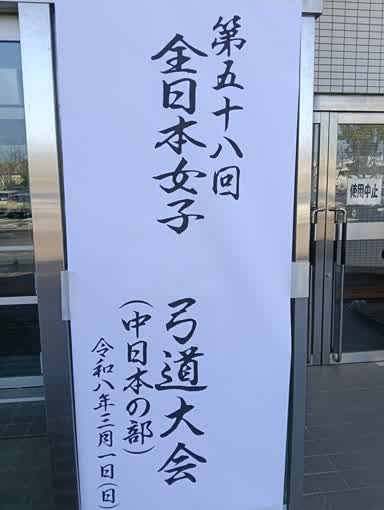 第五十八回
全日本女子
弓道大会
(中日本の部)
令和八年三月一日(日)
使用中止